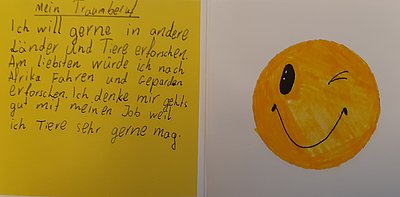 Mein Traumberuf
Ich will gerne in andere
Länder und Tiere erforschen.
Am liebsten würde ich nach
Afrika Fahren und Geparden
erforschen. Ich denke mir gehts
gut mit meinen Job weil
ich Tiere sehr gerne mag.